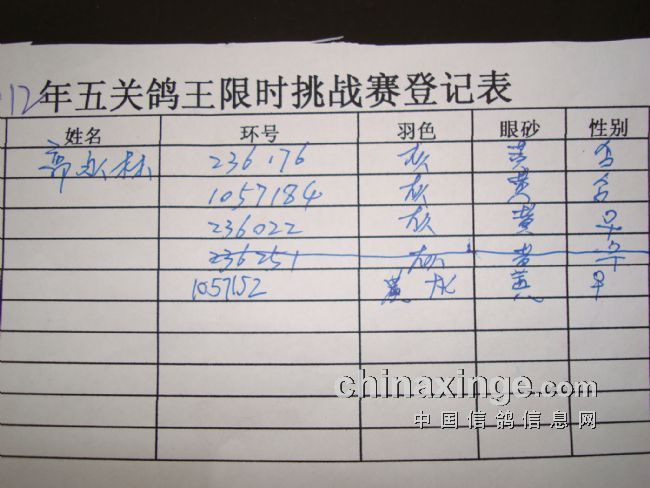 12年五关鸽王限时挑战赛登记表
姓名 环号 羽色 眼砂 性别
郭永林 236176 灰 黄 合
1057184 灰 黄 合
236022 灰 黄 早
236251 灰 黄 早
1057152 黄
chinaxinge.com
中国信鸽信息网